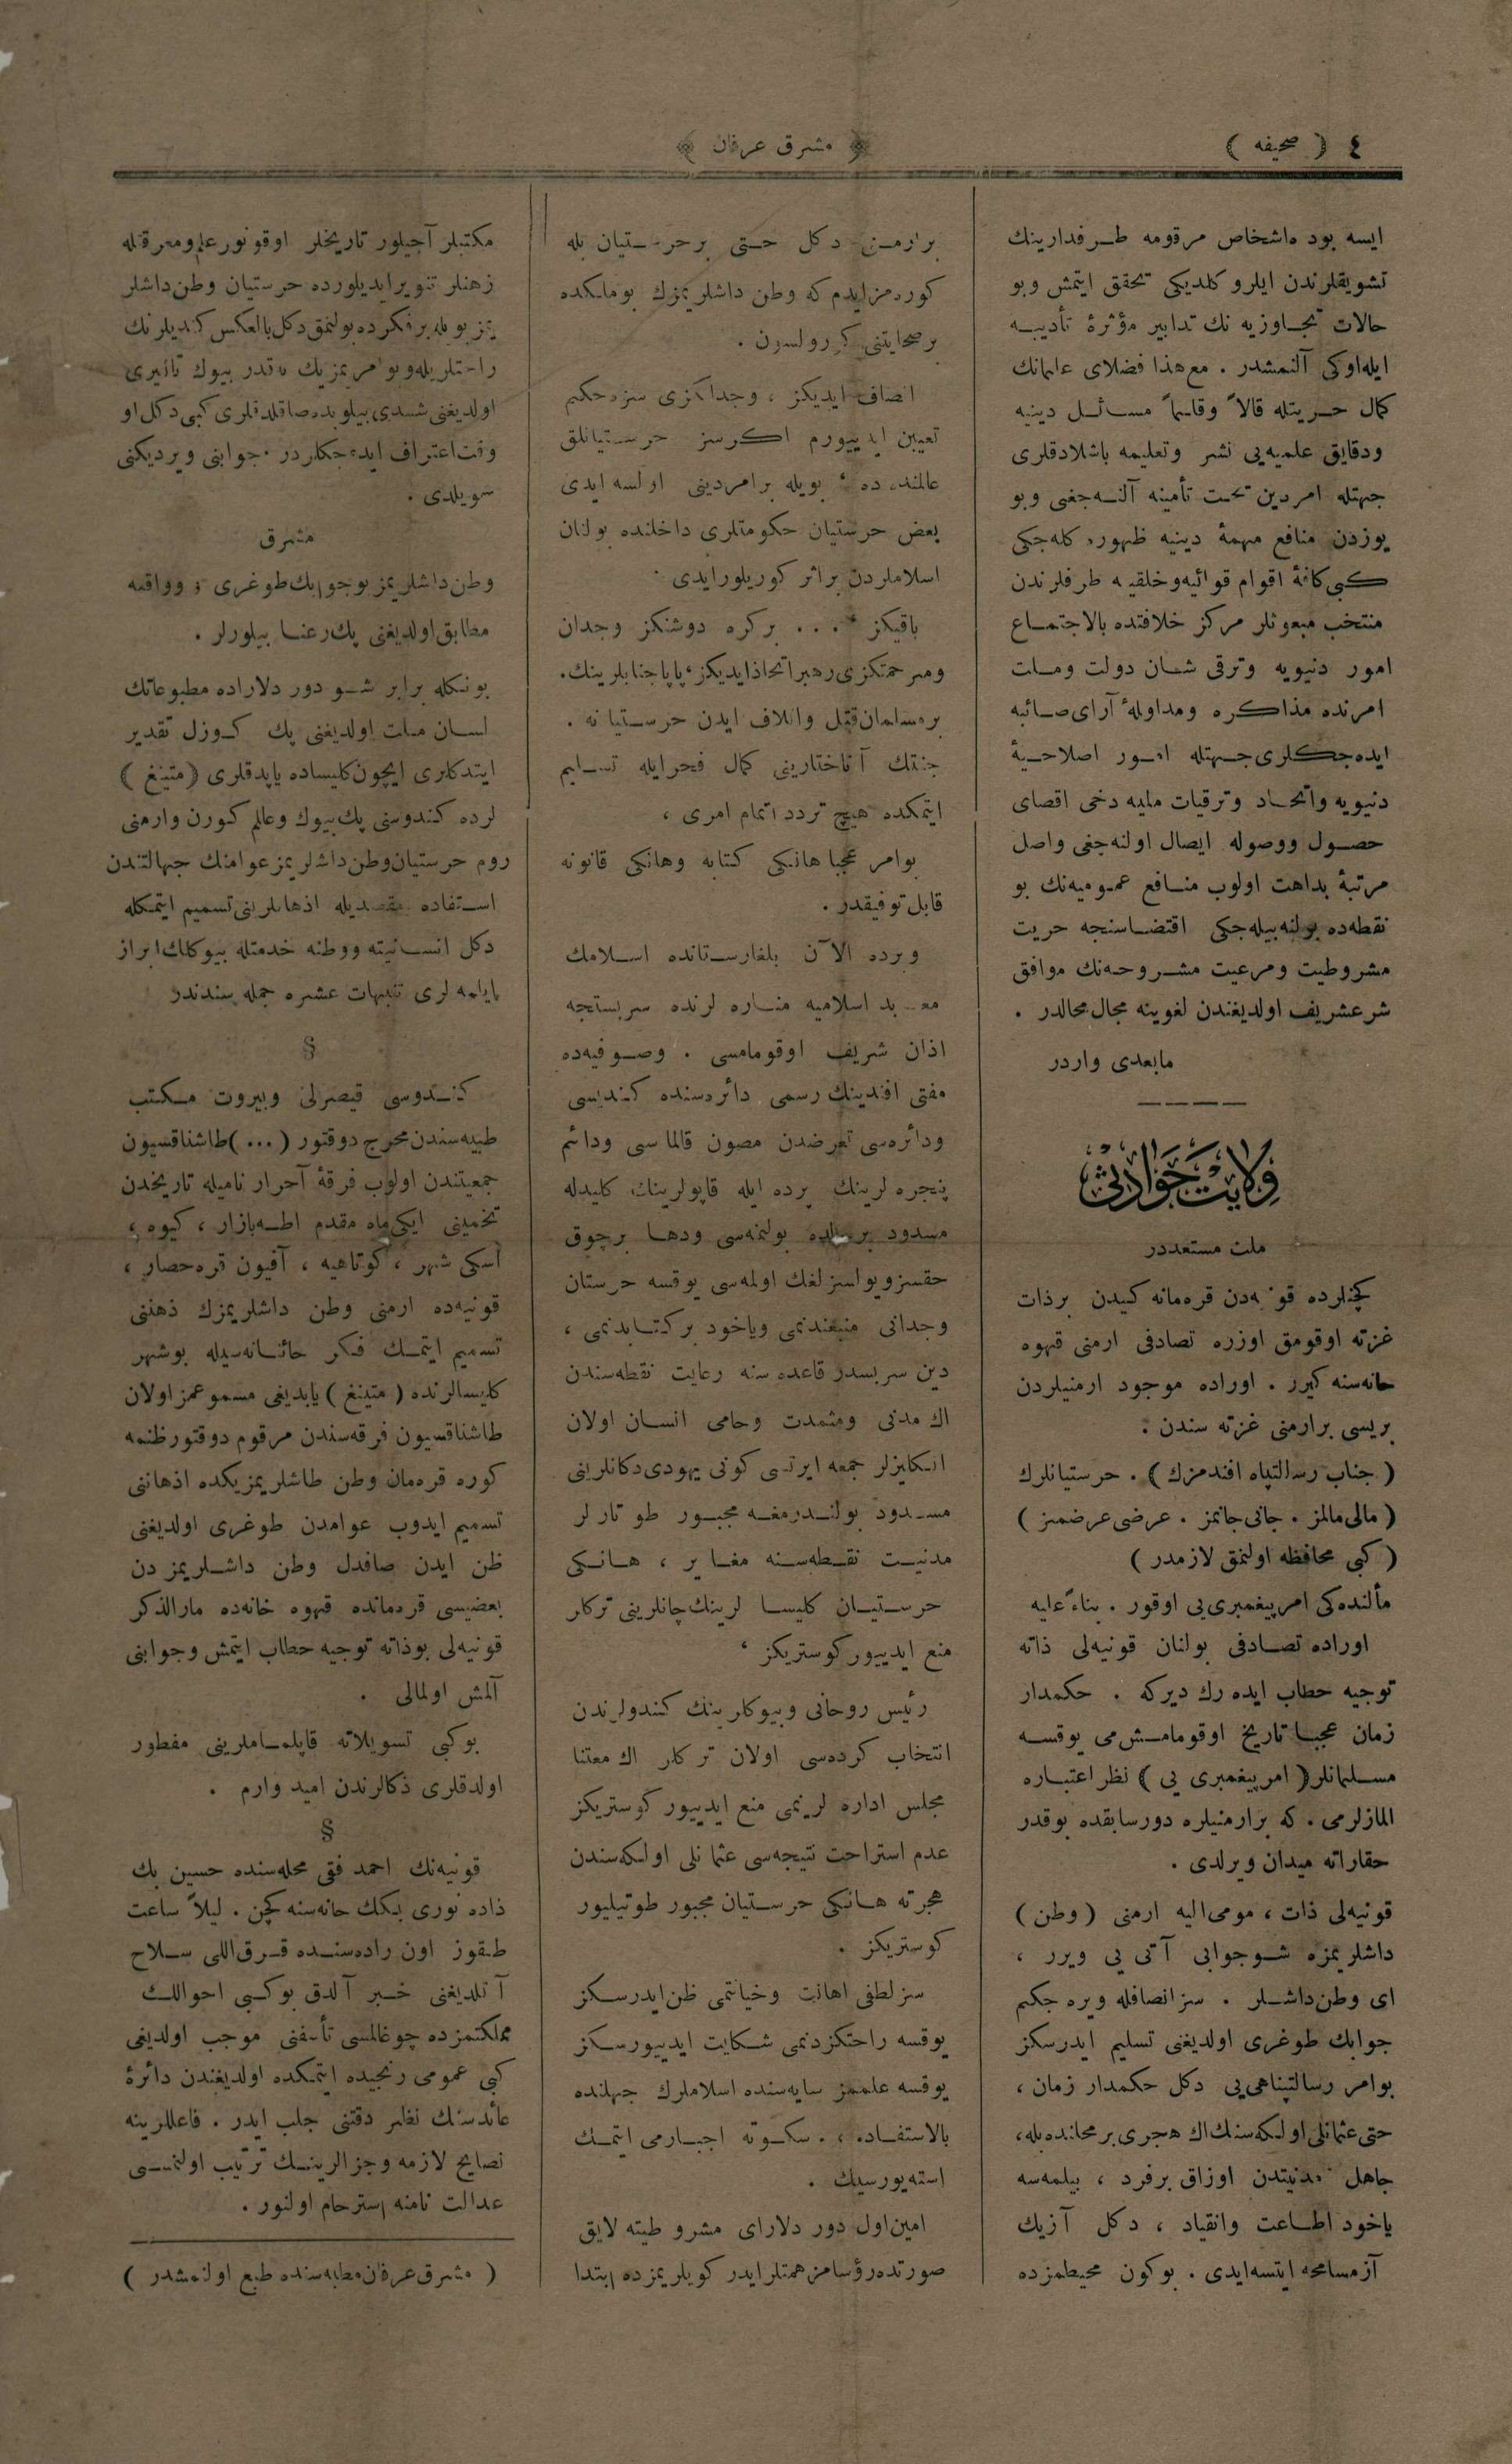 ٤ ( صحیفه )
﴿ مشرق عرفان ﴾
ایسه بود ه اشخاص مرقومه طرفدارینك
تشویقلرندن ایلرو كلدیكی تحقق ایتمش وبو
حالات تجاوزیه نك تدابیر مؤثرهٔ تأدیبیه
ایله اوكی آلنمشدر . مع هذا فضلای علمانك
كمال حریتله قالاً وقلماً مسائل دینیه
ودقایق علمیه‌یی نشر وتعلیمه باشلادقلری
جهتله امر دین تحت تأمینه آلنه‌جغی وبو
یوزدن منافع مهمهٔ دینیه ظهوره كله‌جكی
كبی كافهٔ اقوام قوانیه وخلقیه طرفلرندن
منتخب مبعوثلر مركز خلافتده بالاجتماع
امور دنیویه وترقی شان دولت وملت
امرنده مذاكره ومداولهٔ آرای صائبه
ایده‌جكلری جهتله امور اصلاحیهٔ
دنیویه واتحاد وترقیات ملیه دخی اقصای
حصول ووصوله ایصال اولنه‌جغی واصل
مرتبهٔ بداهت اولوب منافع عمومیه‌نك بو
نقطه‌ده بولنه‌بیله‌جكی اقتضاسنجه حریت
مشروطیت ومرعیت مشروحه‌نك موافق
شرعشریف اولدیغندن لغوینه مجال محالدر .
مابعدی واردر
ولایت حوادثی
ملت مستعددر
كچنلرده قونیه‌دن قره‌مانه كیدن برذات
غزته اوقومق اوزره تصادفی ارمنی قهوه
خانه‌سنه كیرر . اوراده موجود ارمنیلردن
بریسی برارمنی غزته سندن .
( جناب رسالتپناه افندمزك ) . حرستیانلرك
( مالی مالمز . جانی جانمز . عرضی عرضمز )
( كبی محافظه اولنمق لازمدر )
مألنده‌كی امر پیغمبری‌یی اوقور . بناءً علیه
اوراده تصادفی بولنان قونیه‌لی ذاته
توجیه خطاب ایده رك دیركه . حكمدار
زمان عجبا تاریخ اوقومامش‌می یوقسه
مسلمانلر ( امر پیغمبری یی ) نظر اعتباره
المازلرمی . كه برارمنیلره دورسابقده بوقدر
حقاراته میدان ویرلدی .
قونیه‌لی ذات ، مومی‌الیه ارمنی ( وطن )
داشلریمزه شوجوابی آتی یی ویرر ،
ای وطن‌داشلر . سز انصافله ویره جكم
جوابك طوغری اولدیغنی تسلیم ایدرسكز
بوامر رسالتپناهی‌یی دكل حكمدار زمان ،
حتی عثمانلی اولكه سنك اك هجری برمحلنده‌بله ،
جاهل مدنیتدن اوزاق برفرد ، بیلمه‌سه
یاخود اطاعت وانقیاد ، دكل آزیك
آزمسامحه ایتسه‌ایدی . بوكون محیطمزده
برارمنی دكل حتی برحرستیان بله
كوره‌مز ایدم كه وطن داشلریمزك بوملكده
انصاف ایدیكز ، وجدانكزی سزه حكم
تعیین ایدییورم اكرسز حرستیانلق
عالمنده ده ، بویله برامردینی اولسه ایدی
بعض حرستیان حكومتلری داخلنده بولنان
اسلاملردن براثر كوریلورایدی .
باقیكز . . . بركره دوشنكز وجدان
ومرحمتكزی رهبراتخاذایدیكز ، پاپا جنابلرینك .
برمسلمان قتل واتلاف ایدن حرستیانه .
جنتك آناختارینی كمال فخرایله تسلیم
ایتمكده هیچ تردد اتمام امری ،
بوامر عجبا هانكی كتابه وهانكی قانونه
قابل توفیقدر .
وبرده الآن بلغارستانده اسلامك
معابد اسلامیه مناره لرنده سربستجه
اذان شریف اوقومامسی . وصوفیه‌ده
مفتی افندینك رسمی دائره‌سنده كندیسی
ودائره‌سی تعرضدن مصون قالماسی ودائم
پنجره لرینك پرده ایله قاپولرینك كلیدله
مسدود برحالده بولنمه‌سی ودها برچوق
حقسزویولسزلغك اولمه‌سی یوقسه حرستان
وجدانی منبعندنمی ویاخود بركتابدنمی ،
دین سربسدر قاعده سنه رعایت نقطه‌سندن
اك مدنی ومتمدن وحامی انسان اولان
انكلیزلر جمعه ایرتسی كونی یهودی دكانلرینی
مسدود بولندرمغه مجبور طوتارلر
مدنیت نقطه‌سنه مغایر ، هانكی
حرستیان كلیسا لرینك چانلرینی تركلر
منع ایدییور كوستریكز ،
رئیس روحانی وبیوكلرینك كندولرندن
انتخاب كرده‌سی اولان تركلر اك معتنا
مجلس اداره لرینمی منع ایدییور كوستریكز
عدم استراحت نتیجه‌سی عثمانلی اولكه‌سندن
هجرته هانكی حرستیان مجبور طوتیلیور
كوستریكز .
سز لطفی اهانت وخیانتمی ظن‌ایدرسكز
یوقسه راحتكزدنمی شكایت ایدییورسكز
یوقسه علممز سایه‌سنده اسلاملرك جهلنده
بالاستفاده . سكوته اجبارمی ایتمك
استه‌یورسیك .
امین‌اول دور دلارای مشروطیته لایق
صورتده رؤسامز همتلر ایدر كویلریمزده ابتدا
مكتبلر آچیلور تاریخلر اوقونور علم ومعرفتله
زهنلر تنویر ایدیلورده حرستیان وطن‌داشلر
اولدیغنی شمدی بیلوبده صاقلادقلری كبی دكل او
وقت‌اعتراف ایده‌جكلردر . جوابنی ویردیكنی
سویلدی .
مشرق
وطن‌داشلریمز بوجوابك طوغری ، وواقعه
مطابق اولدیغنی پك‌رعنا بیلورلر .
بونكله برابر شو دور دلاراده مطبوعاتك
لسان ملت اولدیغنی پك كوزل تقدیر
ایتدكلری ایچون كلیساده یاپدقلری ( متینغ )
لرده كندوسنی پك بیوك وعالم كورن وارمنی
روم حرستیان‌وطن‌داشلریمز عوامنك جهالتندن
استفاده مقصدیله اذهانلرینی تسمیم ایتمكله
دكل انسانیته ووطنه خدمتله بیوكلك ابراز
ایلمه لری تنبیهات عشره جمله سندندر
§
كندوسی قیصرلی وبیروت مكتب
طبیه‌سندن مخرج دوقتور ( ... ) طاشناقسیون
جمعیتندن اولوب فرقهٔ آحرار نامیله تاریخدن
تخمینی ایكی‌ماه مقدم اطه‌بازار ، كیوه ،
أسكی شهر ، كوتاهیه ، آفیون قره‌حصار ،
قونیه‌ده ارمنی وطن داشلریمزك ذهننی
تسمیم ایتمك فكر خائنانه‌سیله بوشهر
كلیسالرنده ( متینغ ) یاپدیغی مسموعمز اولان
طاشناقسیون فرقه‌سندن مرقوم دوقتور ظنمه
كوره قره‌مان وطن طاشلریمزیكده اذهاننی
تسمیم ایدوب عوامدن طوغری اولدیغنی
ظن ایدن صافدل وطن داشلریمز دن
بعضیسی قره‌مانده قهوه خانه‌ده مارالذكر
قونیه‌لی بوذاته توجیه خطاب ایتمش وجوابنی
آلمش اولمالی .
بوكبی تسویلاته قاپلمامه‌لرینی مفطور
اولدقلری ذكالرندن امید وارم .
§
قونیه‌نك احمد فقی محله‌سنده حسین بك
ذاده نوری بكك خانه‌سنه كچن . لیلاً ساعت
طقوز اون راده‌سنده قرق‌اللی سلاح
آتلدیغنی خبر آلدق بوكبی احوالك
مملكتمزده چوغالمسی تأسفنی موجب اولدیغی
كبی عمومی رنجیده ایتمكده اولدیغندن دائرهٔ
عائده‌سنك نظر دقتنی جلب ایدر . فاعللرینه
نصایح لازمه وجزالرینك ترتیب اولنمسی
عدالت نامنه استرحام اولنور .
( مشرق عرفان مطبعه‌سنده طبع اولنمشدر )